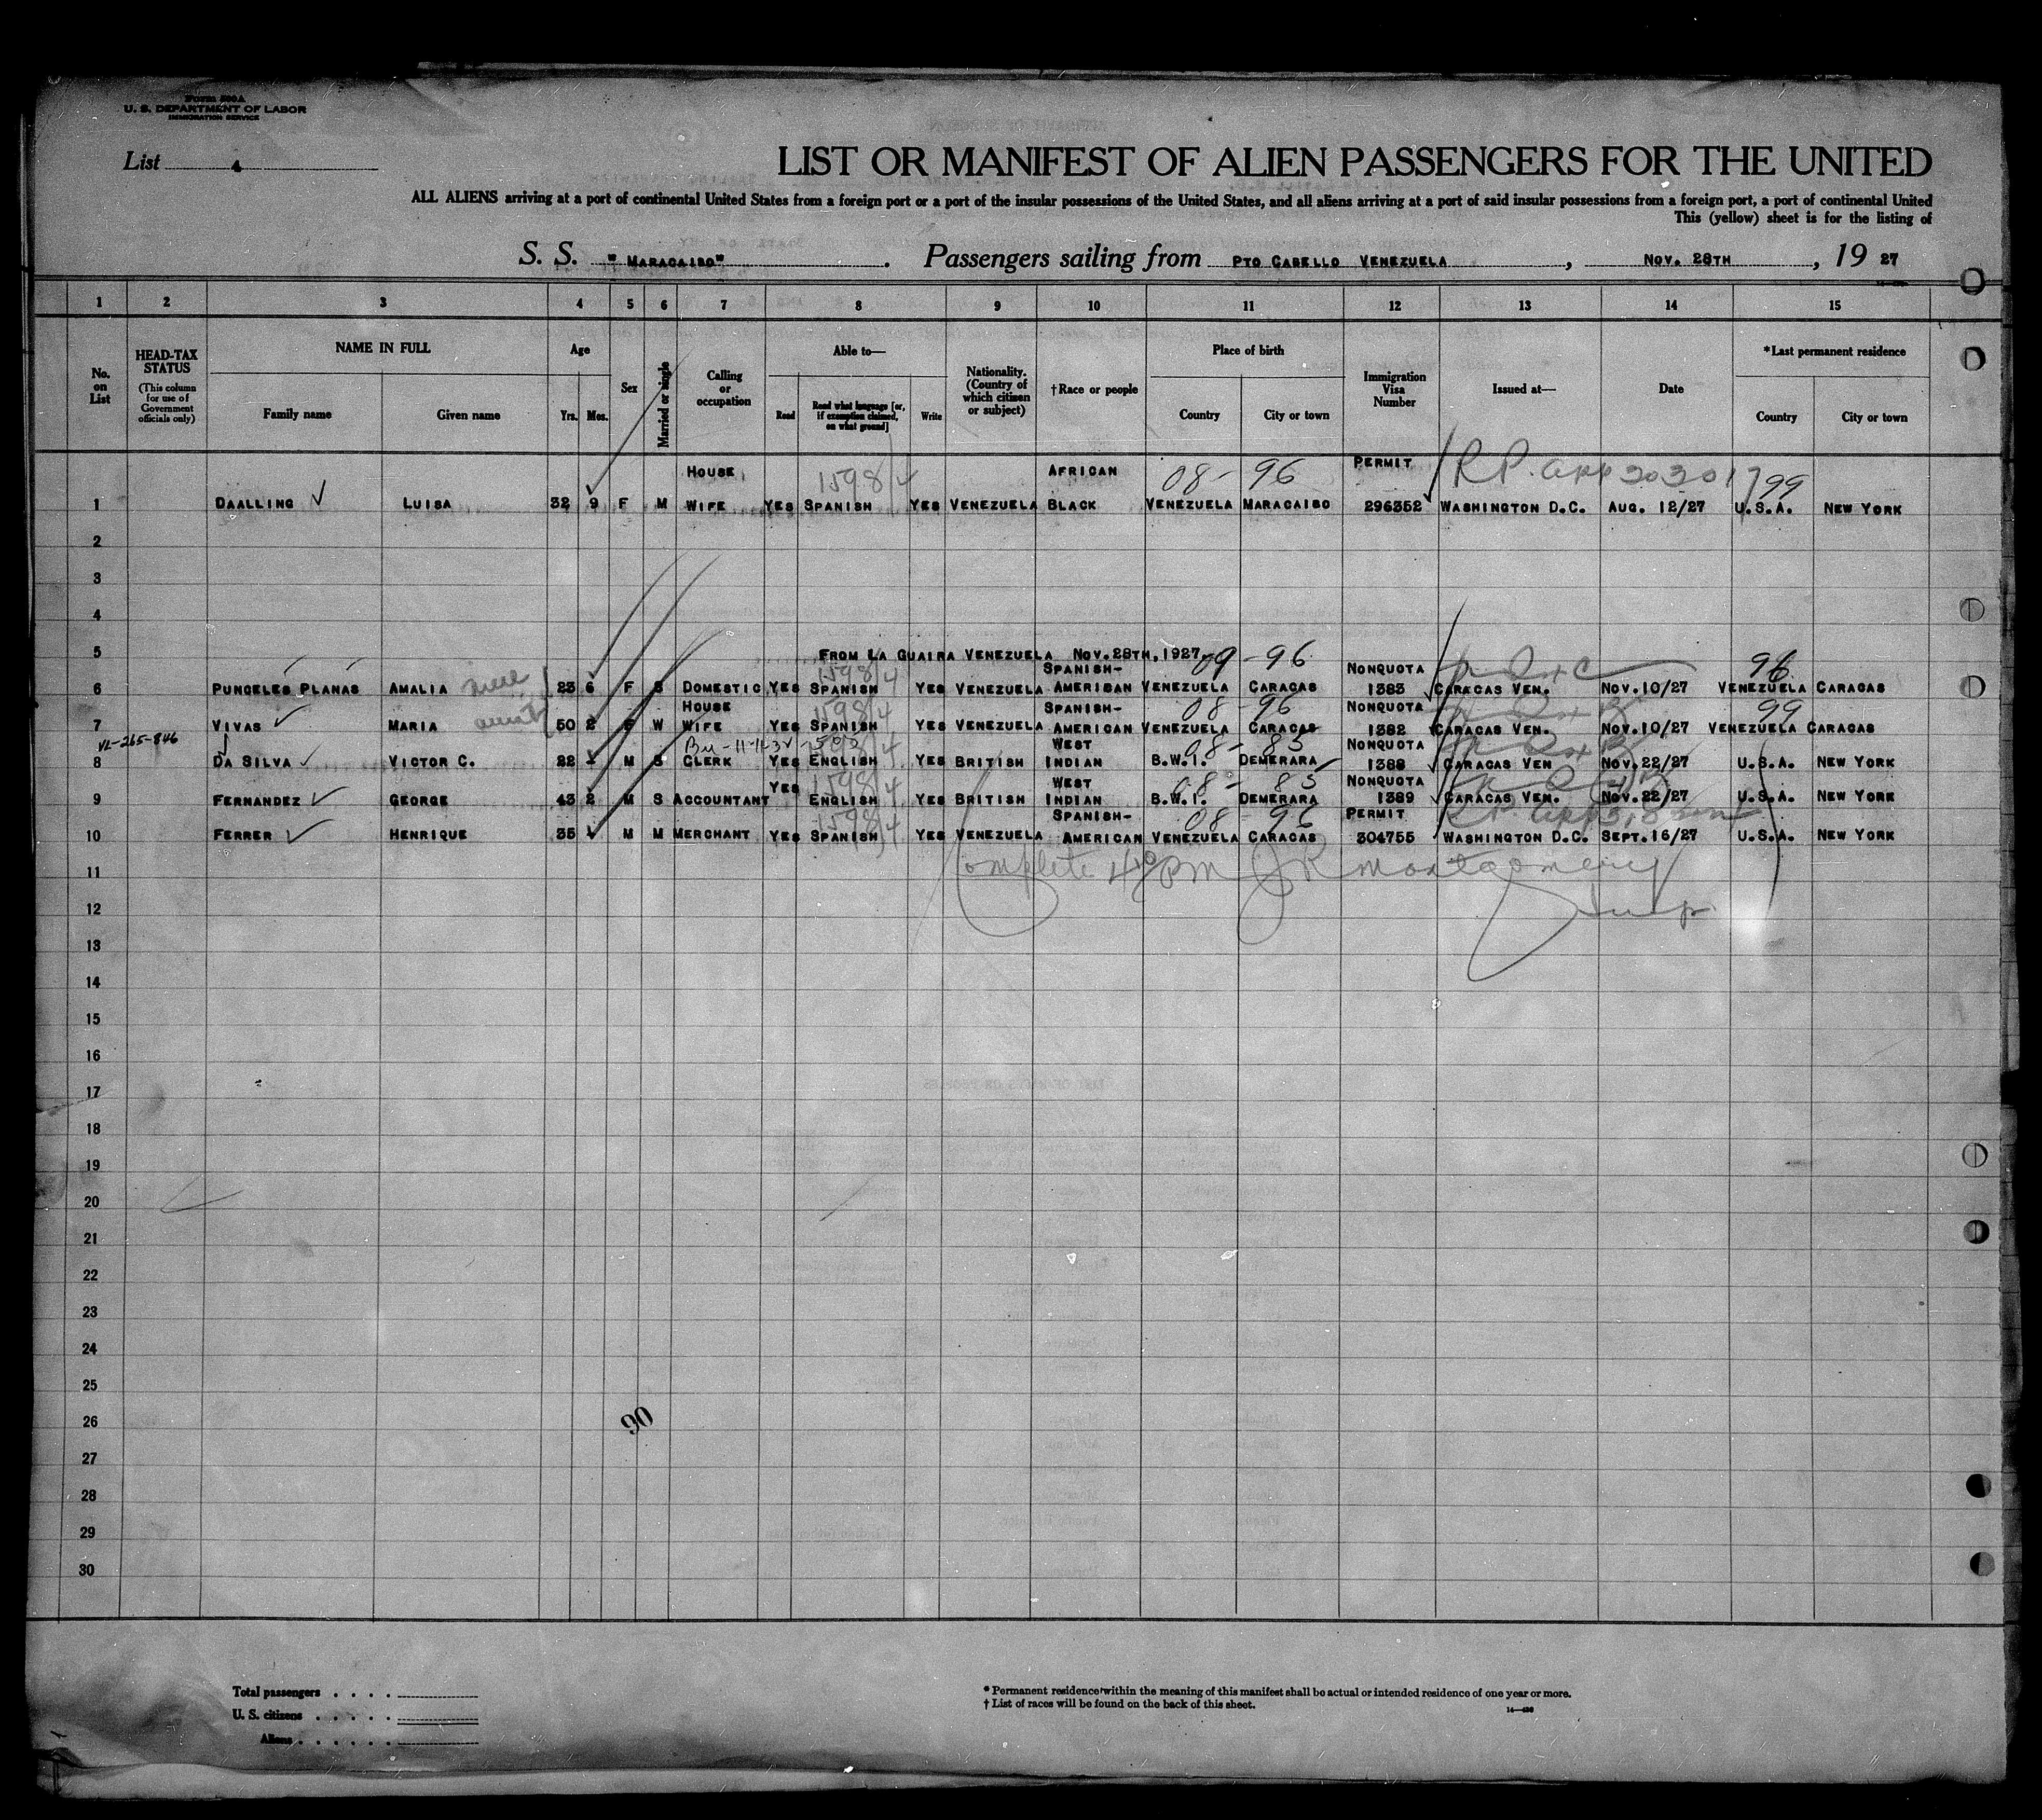 Form 500A
U. S. DEPARTMENT OF LABOR
IMMIGRATION SERVICE
List 4
LIST OR MANIFEST OF ALIEN PASSENGERS FOR THE UNITED
ALL ALIENS arriving at a port of continental United States from a foreign port or a port of the insular possessions of the United States, and all aliens arriving at a port of said insular possessions from a foreign port, a port of continental United
This (yellow) sheet is for the listing of
S. S. "MARACAIBO". Passengers sailing from PTO CABELLO VENEZUELA, NOV. 28TH, 19 27
1 2 3 4 5 6 7 8 9 10 11 12 13 14 15
No. on List
HEAD-TAX STATUS (This column for use of Government officials only)
NAME IN FULL
Family name Given name
Age
Yrs. Mos.
Sex
Married or single
Calling or occupation
Able to—
Read Read what language [or, if exemption claimed, on what ground] Write
Nationality. (Country of which citizen or subject)
†Race or people
Place of birth
Country City or town
Immigration Visa Number
Issued at—
Date
*Last permanent residence
Country City or town
HOUSE 1598/4 AFRICAN 08-96 PERMIT RP. app 99
1 DAALLING LUISA 32 9 F M WIFE YES SPANISH YES VENEZUELA BLACK VENEZUELA MARACAIBO 296352 WASHINGTON D.C. AUG. 12/27 U.S.A. NEW YORK
2
3
4
5 FROM LA GUAIRA VENEZUELA NOV. 28TH, 1927. 09-96
1598/4 SPANISH- NONQUOTA 96
6 PUNCELES PLANAS AMALIA 23 6 F S DOMESTIC YES SPANISH YES VENEZUELA AMERICAN VENEZUELA CARACAS 1383 CARACAS VEN. NOV.10/27 VENEZUELA CARACAS
HOUSE 1598/4 SPANISH- 08-96 NONQUOTA 99
7 VIVAS MARIA aunt 50 2 F W WIFE YES SPANISH YES VENEZUELA AMERICAN VENEZUELA CARACAS 1382 CARACAS VEN. NOV.10/27 VENEZUELA CARACAS
VL-265-846 WEST 08-85 NONQUOTA
8 DA SILVA VICTOR C. 22 M S CLERK YES ENGLISH YES BRITISH INDIAN B.W.I. DEMERARA 1388 CARACAS VEN NOV.22/27 U.S.A. NEW YORK
YES 1598/4 WEST 08-85 NONQUOTA
9 FERNANDEZ GEORGE 43 2 M S ACCOUNTANT ENGLISH YES BRITISH INDIAN B.W.I. DEMERARA 1389 CARACAS VEN. NOV.22/27 U.S.A. NEW YORK
1598/4 SPANISH- 08-96 PERMIT RP. app
10 FERRER HENRIQUE 35 M M MERCHANT YES SPANISH YES VENEZUELA AMERICAN VENEZUELA CARACAS 304755 WASHINGTON D.C. SEPT.16/27 U.S.A. NEW YORK
11 Complete PM JR Montgomery
12 Insp
13
14
15
16
17
18
19
20
21
22
23
24
25
26 90
27
28
29
30
Total passengers
U. S. citizens
Aliens
* Permanent residence within the meaning of this manifest shall be actual or intended residence of one year or more.
† List of races will be found on the back of this sheet.